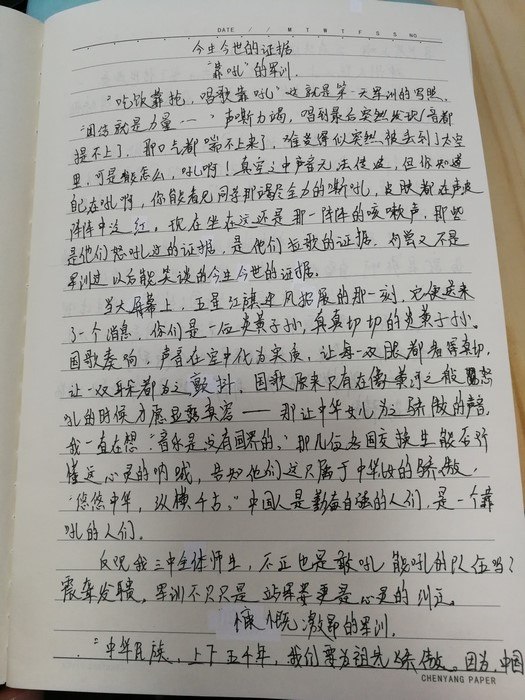 DATE / / M T W T F S S NO
今生今世的证据
“靠吼”的军训.
“吃饭靠抢，唱歌靠吼”也就是第一天军训的写照.
“团结就是力量……”声嘶力竭，唱到最后突然发现1音都
提不上了，那口气都喘不上来了，难受得似突然被丢到了太空
里，可是能怎么，吼啊！真空之中声音无法传递，但你知道
自己在吼啊，你能看见同学那竭尽全力的嘶吼，皮肤都在声波
阵阵中泛红. 现在坐在这还是那一阵阵的咳嗽声，那些
是他们怒吼过的证据，是他们拉歌的证据. 何曾又不是
军训过以后能笑谈的今生今世的证据。
当大屏幕上，五星红旗迎风招展的那一刻，它便送来
了一个消息，你们是一位炎黄子孙，真真切切的炎黄子孙.
国歌奏响，声音在空中化为实质，让每一双眼都看得真切，
让一双耳朵都为之颤抖. 国歌原来只有在像黄河之般怒
吼的时候才愿显露真容——那让中华儿女为之骄傲的声音.
我一直在想“音乐是没有国界的，”那几位各国交换生能否听
懂这心灵的呐喊，告知他们这只属于中华的骄傲.
“悠悠中华，纵横千古。”中国人是勤奋自强的人们，是一个靠
吼的人们.
反观我三中全体师生，不正也是敢吼能吼的队伍吗？
震聋发聩. 军训不只只是站军姿更是心灵的纠正。
慷慨激昂的军训.
“中华民族，上下五千年，我们要为祖先骄傲。因为，中国
CHENYANG PAPER